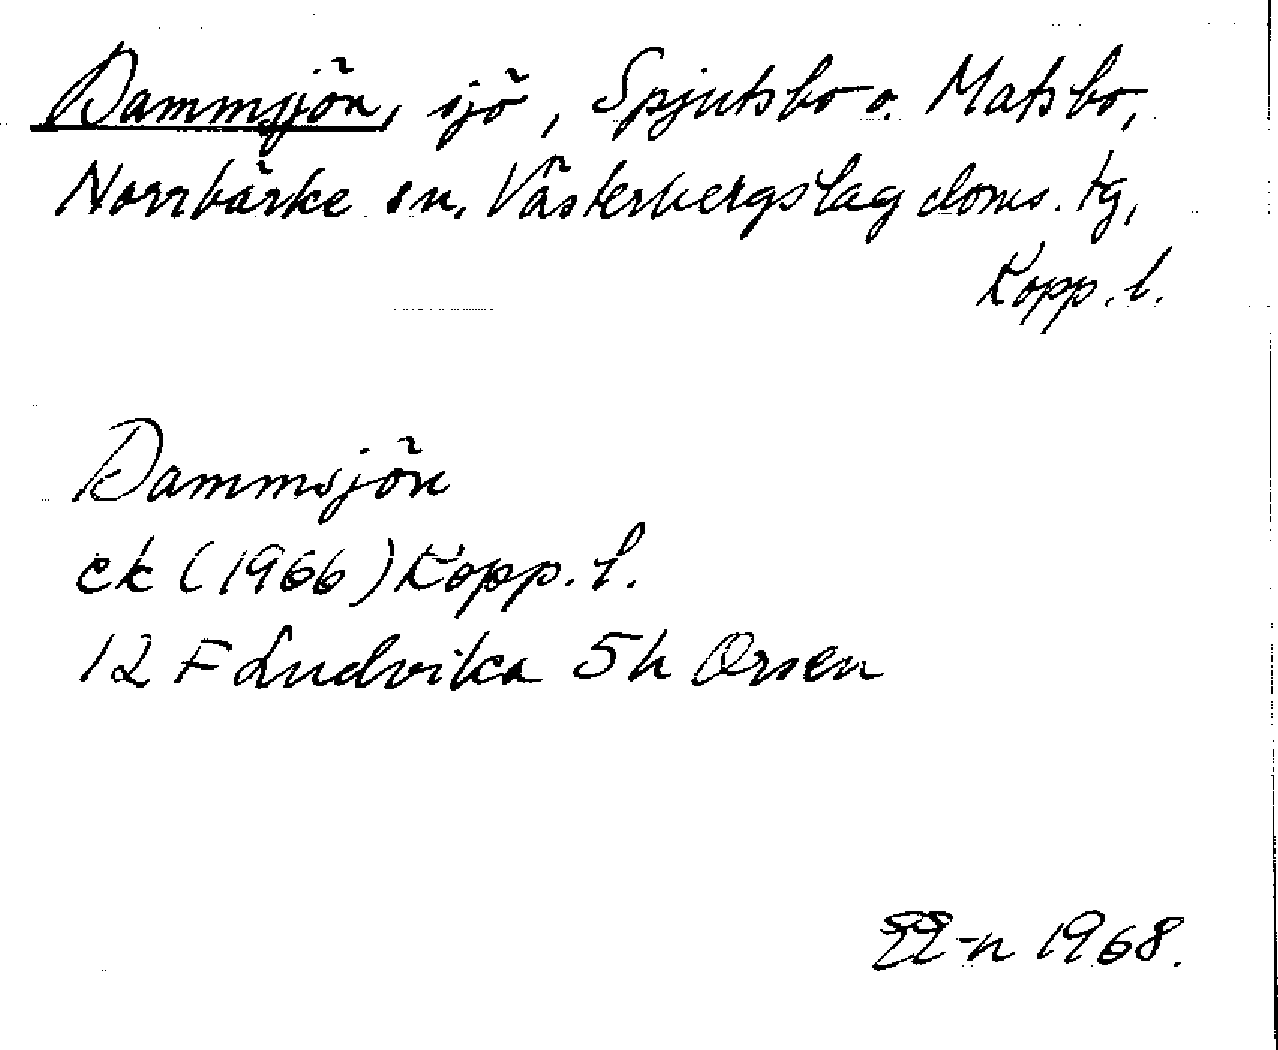 Dammsjön, sjö, Spjutsbo o. Matsbo,
Norrbärke sn. Västerbergslag doms. tg,
Kopp. l.
Dammsjön
ek (1966) Kopp. l.
12 F Ludvika 5h Orsen
EE-n 1968.